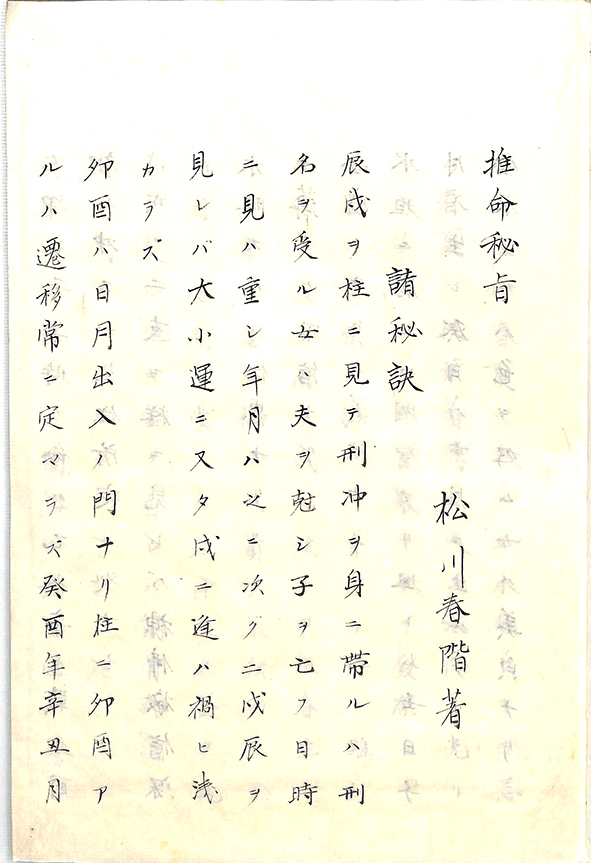 推命秘旨
松川春階著
諸秘訣
辰戌ヲ柱ニ見テ刑冲ヲ身ニ帶ルハ刑
名ヲ受ル女ハ夫ヲ尅シ子ヲ亡フ日時
ニ見ハ重シ年月ハ之ニ次グニ戌辰ヲ
見レバ大小運ニ又タ戌ニ逢ハ禍ヒ浅
カラズ
卯酉ハ日月出入ノ門ナリ柱ニ卯酉ア
ルハ遷移常ニ定マラズ癸酉年辛丑月